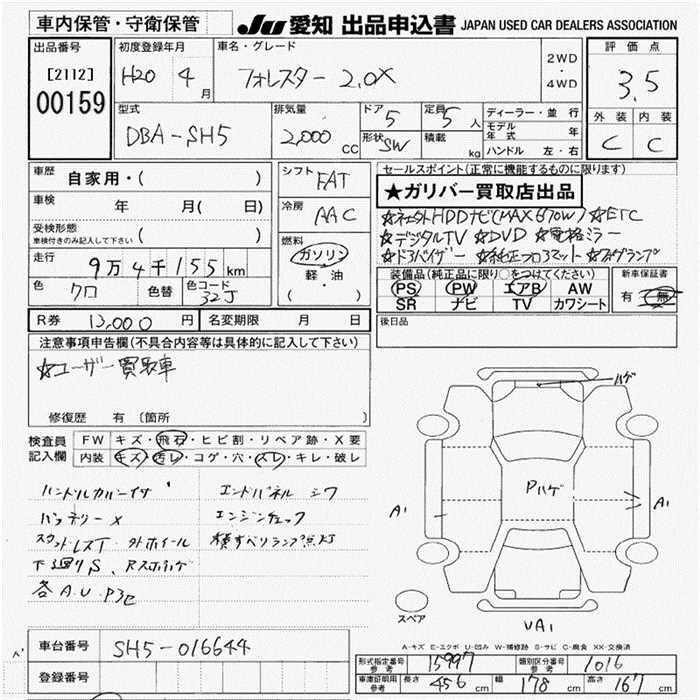 車内保管・守衛保管
JU 愛知 出品申込書 JAPAN USED CAR DEALERS ASSOCIATION
出品番号
[2112]
00159
初度登録年月
H20 4月
車名・グレード
フォレスター 2.0X
2WD
・
4WD
評価点
3.5
外装 内装
C C
型式
DBA-SH5
排気量
2,000 cc
ドア 5
形状 SW
定員 5 人
積載 kg
ディーラー・並行
モデル年式 年
ハンドル 左・右
車歴 自家用・( )
車検 年 月( 日)
受検形態
車検付きのみ記入して下さい ( )
走行 9万4千155km
色 クロ 色替 色コード 32J
シフト FAT
冷房 AAC
燃料
ガソリン
軽・油
( )
セールスポイント(正常に機能するものに限ります)
★ガリバー買取店出品
☆ETC
☆デジタルTV ☆DVD ☆電格ミラー
☆ドアバイザー ☆純正フロアマット ☆フォグランプ
装備品(純正品に限り○をつけてください)
PS PW エアB AW
SR ナビ TV カワシート
新車保証書
有・無
R券 13,000円 名変期限 月 日
後日品
注意事項申告欄(不具合内容等は具体的に記入して下さい)
☆ユーザー買取車
修復歴 有〔箇所 〕
検査員記入欄
FW キズ・飛石・ヒビ割・リペア跡・X要
内装 キズ・汚レ・コゲ・穴・スレ・キレ・破レ
ハンドルカバーイタ エンドパネル シワ
バッテリーX エンジンチェック
横すべりランプ点灯
各A.U.P3E
ハゲ
Pハゲ
A1
A1
スペア
UA1
A-キズ E-エクボ U-凹み W-補修跡 S-サビ C-腐食 XX-交換済
車台番号 SH5-016644
登録番号
形式指定番号 参考 15997 類別区分番号 参考 1016
車庫証明用 参考 長さ 456 cm 幅 178 cm 高さ 167 cm